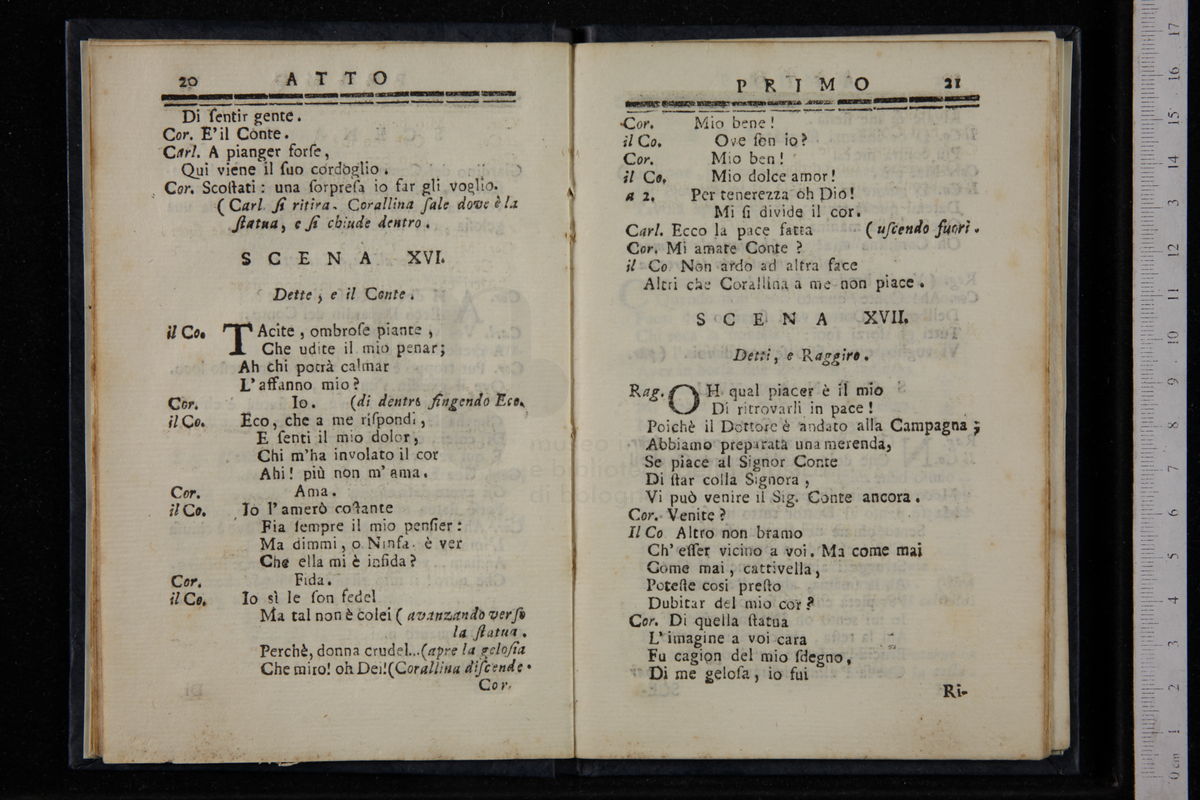 20 ATTO
Di ſentir gente.
Cor. E'il Conte.
Carl. A pianger forſe,
Qui viene il ſuo cordoglio.
Cor. Scoſtati: una ſorpreſa io far gli voglio.
(Carl. ſi ritira. Corallina ſale dove è la
ſtatua, e ſi chiude dentro.
SCENA XVI.
Dette, e il Conte.
il Co. TAcite, ombroſe piante,
Che udite il mio penar;
Ah chi potrà calmar
L'affanno mio?
Cor. Io. (di dentro fingendo Eco.
il Co. Eco, che a me riſpondi,
E ſenti il mio dolor,
Chi m'ha involato il cor
Ahi! più non m'ama.
Cor. Ama.
il Co. Io l'amerò coſtante
Fia ſempre il mio penſier:
Ma dimmi, o Ninfa. è ver
Che ella mi è infida?
Cor. Fida.
il Co. Io sì le ſon fedel
Ma tal non è colei (avanzando verſo
la ſtatua.
Perchè, donna crudel...(apre la geloſia
Che miro! oh Dei!(Corallina diſcende.
Cor.
PRIMO 21
Cor. Mio bene!
il Co. Ove ſon io?
Cor. Mio ben!
il Co. Mio dolce amor!
a 2. Per tenerezza oh Dio!
Mi ſi divide il cor.
Carl. Ecco la pace fatta (uſcendo fuori.
Cor. Mi amate Conte?
il Co Non ardo ad altra face
Altri che Corallina a me non piace.
SCENA XVII.
Detti, e Raggiro.
Rag. OH qual piacer è il mio
Di ritrovarli in pace!
Poichè il Dottore è andato alla Campagna;
Abbiamo preparata una merenda,
Se piace al Signor Conte
Di ſtar colla Signora,
Vi può venire il Sig. Conte ancora.
Cor. Venite?
Il Co Altro non bramo
Ch'eſſer vicino a voi. Ma come mai
Come mai, cattivella,
Poteſte così preſto
Dubitar del mio cor?
Cor. Di quella ſtatua
L'imagine a voi cara
Fu cagion del mio ſdegno,
Di me geloſa, io fui
Ri-